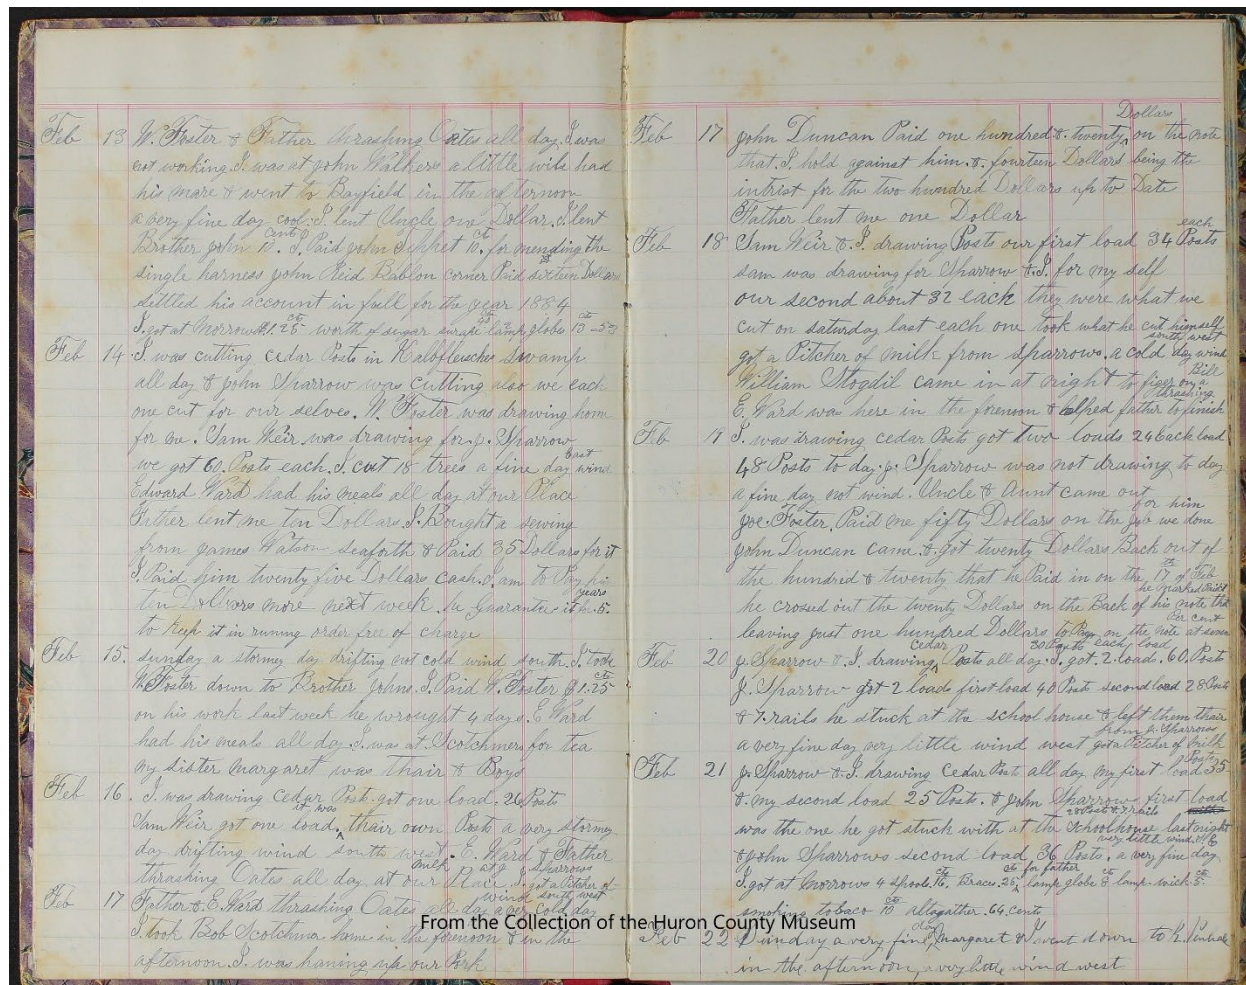 Feb 13 W. Foster & Father thrashing Oates all day I was
not working. I was at John Walkers a little wile had
his mare & went to Bayfield in the afternoon
a very fine day cool. I lent Uncle one Dollar. I lent
Brother John 10 cents. I Paid John Tippet 10 cts. for mending the
single harness John Reid Bablon corner Paid sixteen Dollars
settled his account in full for the year 1884
I got at Morrows $1.25 cts worth of sugar lamp globes 13
Feb 14 I was cutting cedar Posts in Kalbfleisches swamp
all day & John Sparrow was cutting also we each
one cut for our selves. W. Foster was drawing home
for me. Sam Weir was drawing for J. Sparrow
we got 60 Posts each. I cut 18 trees a fine day East wind
Edward Ward had his meals all day at our Place
Father lent me ten Dollars. I Bought a sewing
from James Watson Seaforth & Paid 35 Dollars for it
I Paid him twenty five Dollars cash. I am to Pay his
ten Dollars more next week. he guarantee it for 5 years
to keep it in runing order free of charge
Feb 15. sunday a stormey day drifting not cold wind south. I took
W. Foster down to Brother Johns. I Paid W. Foster $1.25 cts
on his work last week he wrought 4 days. E Ward
had his meals all day. I was at Scotchmers for tea
my sister margaret was thair & Boys
Feb 16. I was drawing cedar Posts. got one load. 26 Posts
Sam Weir got one load. it was thair own Posts a very stormey
day drifting wind south west. E. Ward & Father
thrashing Oates all day at our Place. I got a Pitcher of milk at J Sparrows
Feb 17 Father & E. Ward thrashing Oates all day a very cold day wind south west
I took Bob Scotchmer home in the forenoon & in the
afternoon I was haning up our Pork
Feb 17 John Duncan Paid one hundred & twenty Dollars on the note
that I hold against him. & fourteen Dollars being the
intrist for the two hundred Dollars up to Date
Father lent me one Dollar
Feb 18 Sam Weir & I drawing Posts our first load 34 Posts each
sam was drawing for Sparrow & I for my self
our second about 32 each they were what we
cut on saturday last each one took what he cut himself
got a Pitcher of milk from Sparrows. a cold day south west wind
William Stogdil came in at night to figer on a Bill
E. Ward was here in the forenoon & helped father to finish thrashing
Feb 19 I was drawing cedar Posts got two loads 24 each load
48 Posts to day. J. Sparrow was not drawing to day
a fine day not wind. Uncle & Aunt came out
Joe. Foster. Paid me fifty Dollars on the job we done for him
John Duncan came & got twenty Dollars Back out of
the hundred & twenty that he Paid in on the 17th of Feb
he crossed out the twenty Dollars on the Back of his note that he marked Paid
leaving just one hundred Dollars to Pay on the note at seven Per cent
Feb 20 J. Sparrow & I. drawing cedar Posts all day. I got 2 loads. 60 Posts 30 Posts each load
J. Sparrow got 2 loads first load 40 Posts second load 28 Posts
& 7 rails he stuck at the school house & left them thair
a very fine day very little wind west got a Pitcher of milk from J. Sparrows
Feb 21 J. Sparrow & I. drawing Cedar Posts all day my first load 35 Posts
& my second load 25 Posts. & John Sparrows first load
was the one he got stuck with at the Schoolhouse last night 28 Posts 7 rails
& John Sparrows second load 36 Posts. a very fine day very little wind
I got at Morrows 4 spools 16 cts, Braces 25 cts for father lamp globe 8 cts lamp-wick 5 cts.
smoking tobaco 10 cts altogather .64. cents
From the Collection of the Huron County Museum
Feb 22 Sunday a very fine day margaret & I went down to R. Penhale
in the afternoon, a very little wind west